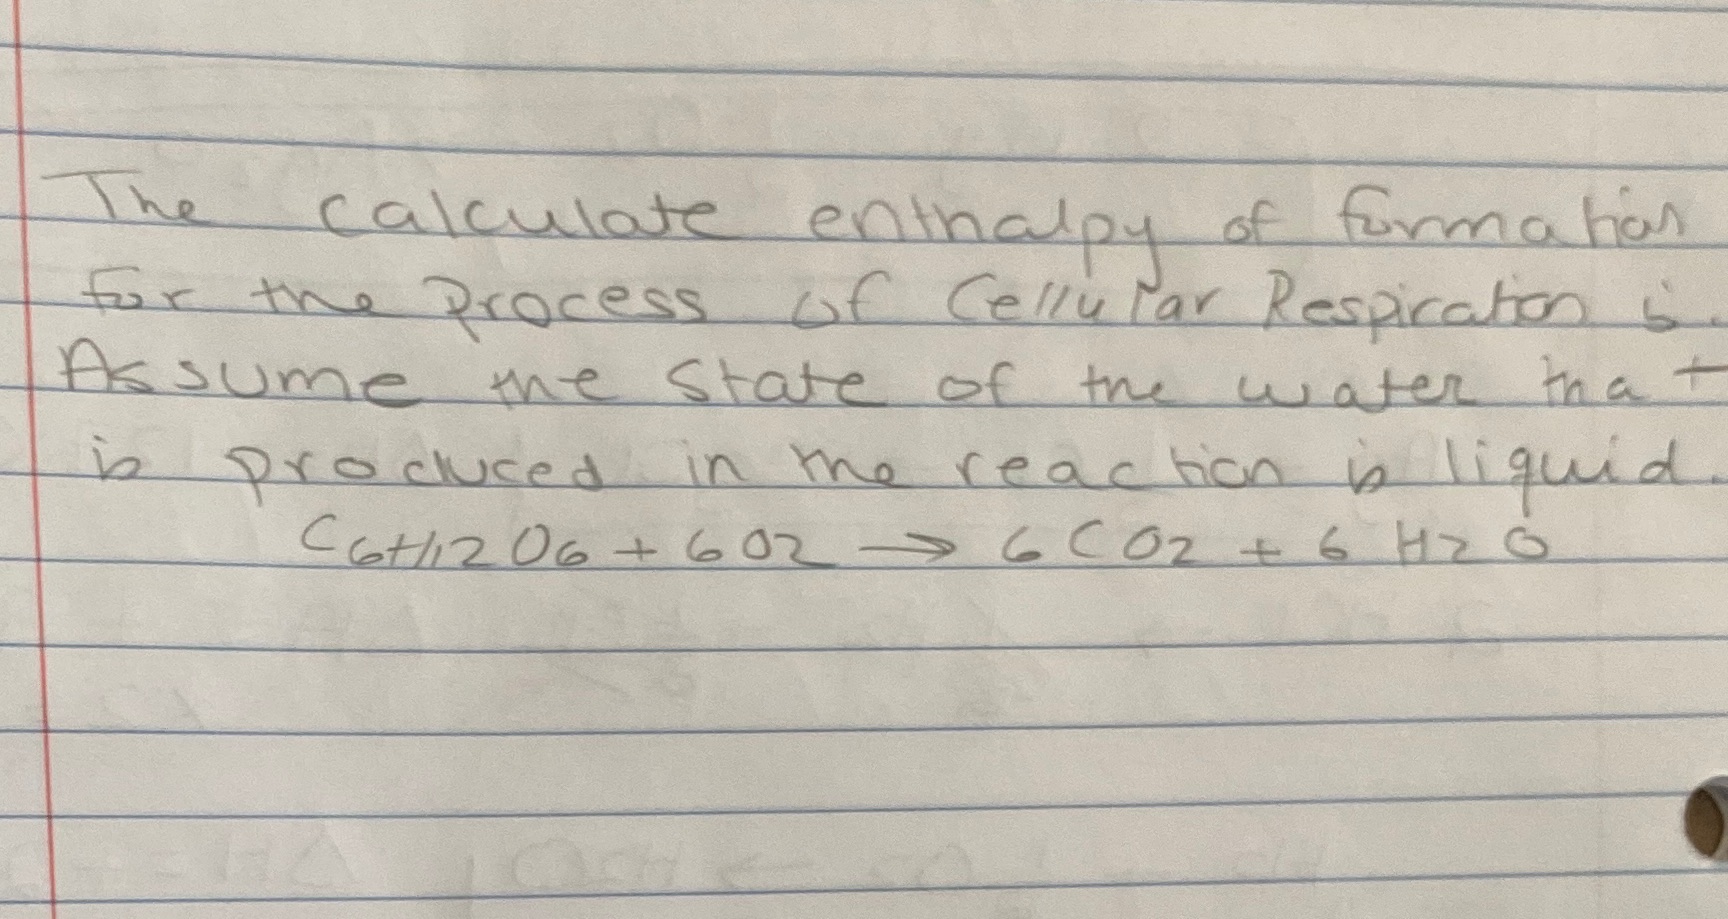 The calculate enthalpy of formation
for the Process of Cellular Respiration is.
Assume the state of the water that
is produced in the reaction is liquid.
C6H12O6 + 6O2 → 6CO2 + 6H2O